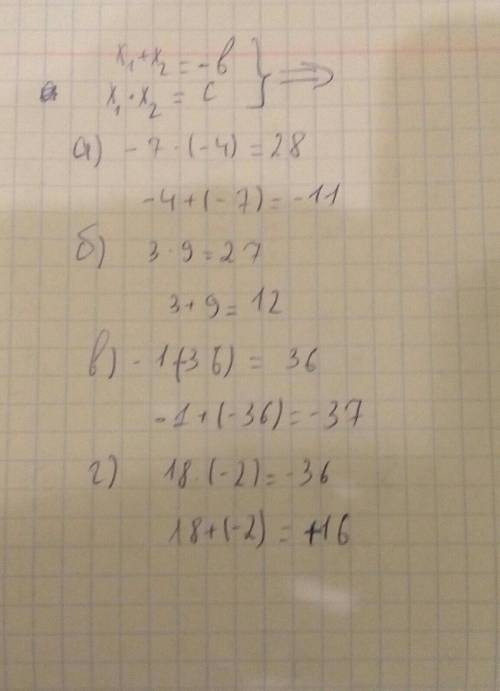 x₁+x₂ = -b } ⇒
x₁·x₂ = c
а) -7·(-4) = 28
-4+(-7) = -11
б) 3·9 = 27
3+9 = 12
в) -1(-36) = 36
-1+(-36) = -37
г) 18·(-2) = -36
18+(-2) = +16